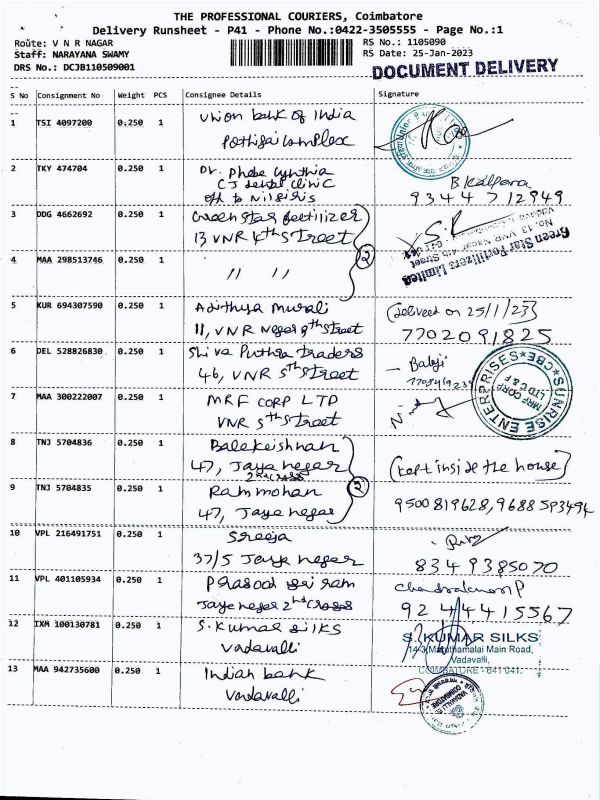 THE PROFESSIONAL COURIERS, Coimbatore
Delivery Runsheet - P41 - Phone No.:0422-3505555 - Page No.:1
Route: V N R NAGAR
Staff: NARAYANA SWAMY
DRS No.: DCJB110509001
RS No.: 1105090
RS Date: 25-Jan-2023
DOCUMENT DELIVERY
S No Consignment No Weight PCS Consignee Details Signature
1 TSI 4097200 0.250 1 Union bank of India
Pothigai complex
2 TKY 474704 0.250 1 Dr. Phebe Cynthia
CJ dental clinic
off to Nilgiris
B Kalpana
9344712949
3 DDG 4662692 0.250 1 Green star fertilizer
13 VNR 4th street
2
Green Star Fertilizers Limited
No. 13, VNR Nagar 4th Street
4 MAA 298513746 0.250 1 " "
5 KUR 694307590 0.250 1 Adithya Murali
11, VNR Nagar 9th street
(delivered on 25/1/23)
7702091825
6 DEL 528826830 0.250 1 Shiva Puthra traders
46, VNR 5th street
Babji
7 MAA 300222007 0.250 1 MRF CORP LTD
VNR 5th street
SUNRISE ENTERPRISES * CBE *
MRF CORP
LTD C & F
8 TNJ 5704836 0.250 1 Balakrishnan
47, Jaya nagar
2nd cross
(kept inside the house)
2
9 TNJ 5704835 0.250 1 Rammohan
47, Jaya nagar
9500819628, 9688593494
10 VPL 216491751 0.250 1 Sreeja
37/5 Jaya nagar
8349385070
11 VPL 401105934 0.250 1 Prasad sri ram
Jaya nagar 2nd cross
9244415567
12 IXM 100130781 0.250 1 S. Kumar silks
Vadavalli
S. KUMAR SILKS
14-3 Maruthamalai Main Road,
Vadavalli,
COIMBATORE - 641 041.
13 MAA 942735600 0.250 1 Indian bank
Vadavalli